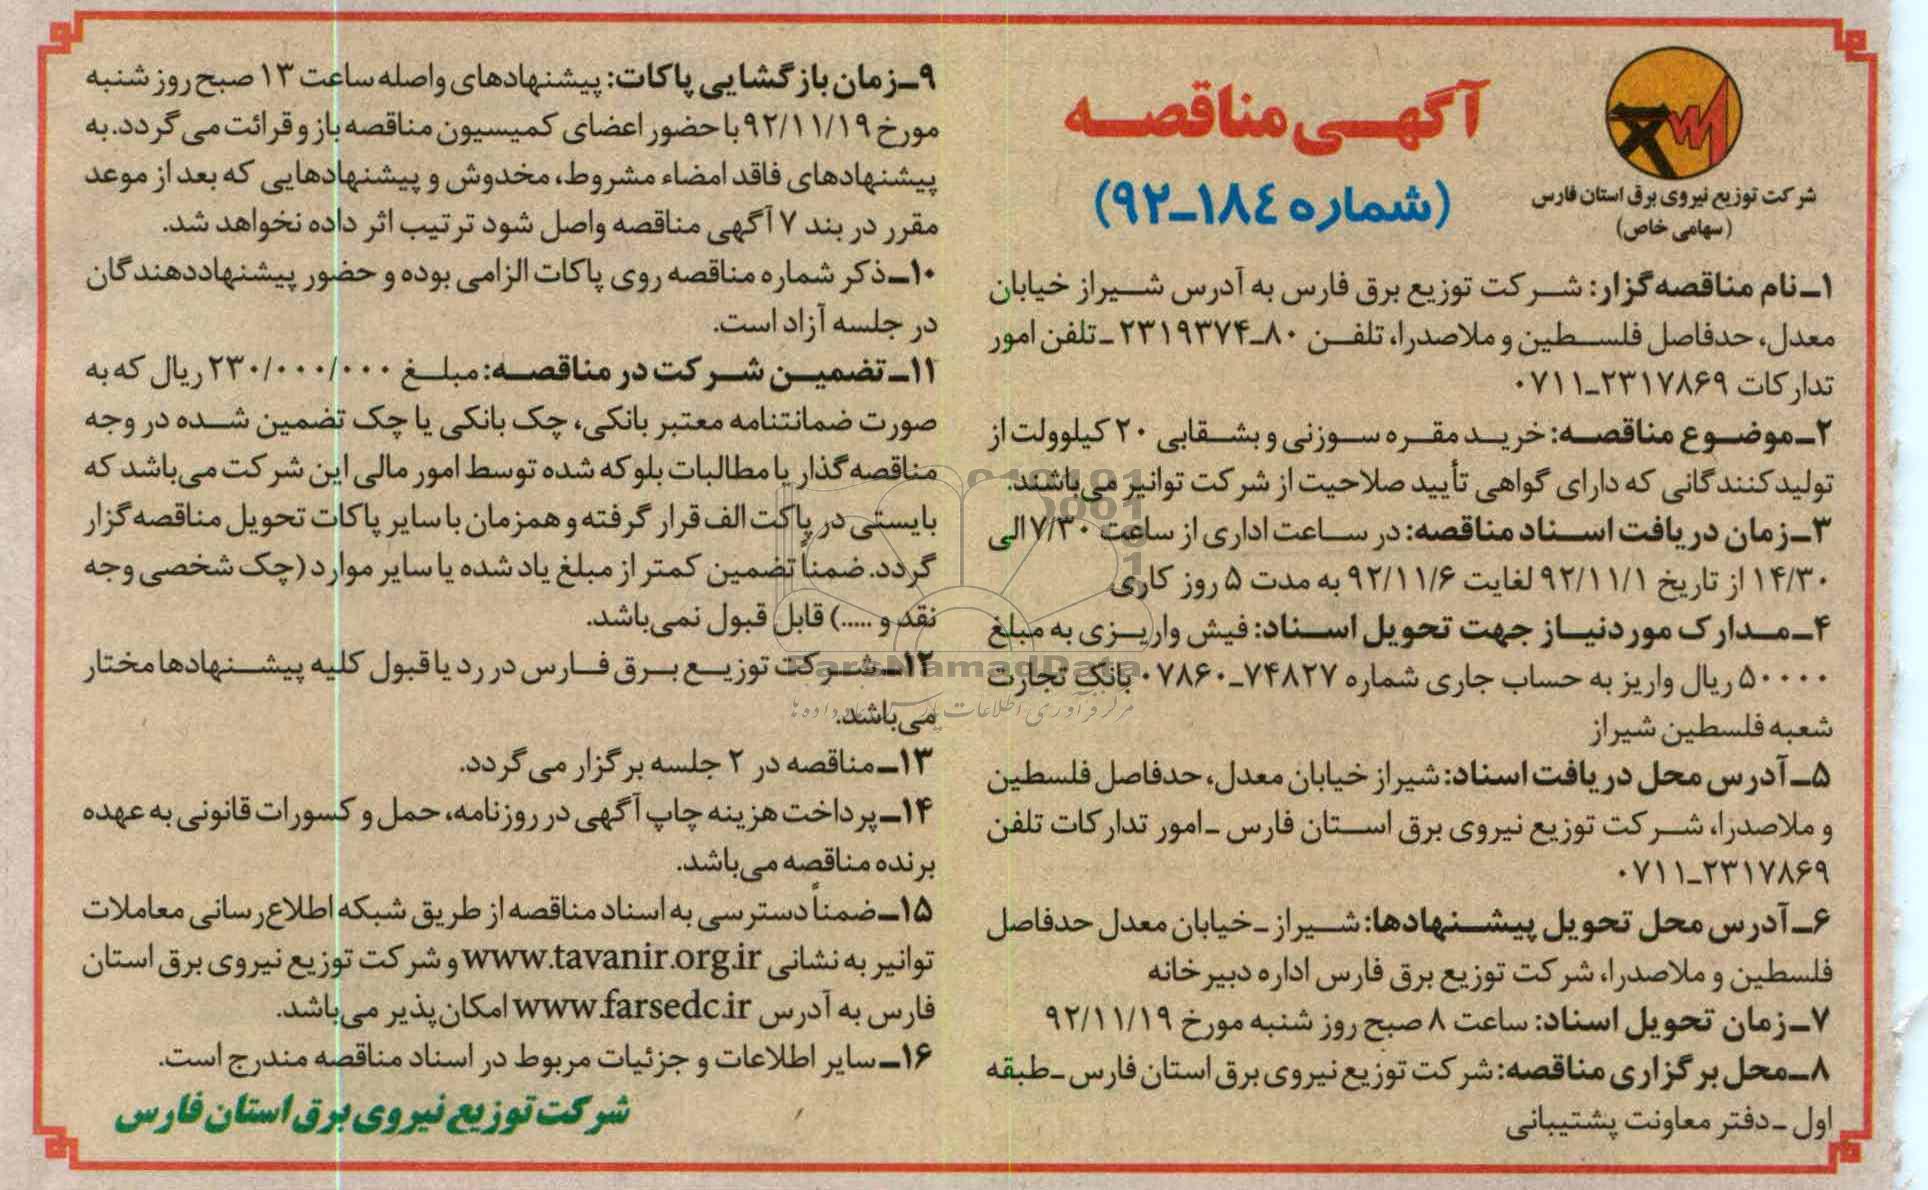 شرکت توزیع نیروی برق استان فارس
(سهامی خاص)
آگهی مناقصه
(شماره ۱۸٤ـ۹۲)
۱ـ نام مناقصه‌گزار: شرکت توزیع برق فارس به آدرس شیراز خیابان
معدل، حدفاصل فلسطین و ملاصدرا، تلفن ۸۰ـ۲۳۱۹۳۷۴ ـ تلفن امور
تدارکات ۲۳۱۷۸۶۹ـ۰۷۱۱
۲ـ موضوع مناقصه: خرید مقره سوزنی و بشقابی ۲۰ کیلوولت از
تولیدکنندگانی که دارای گواهی تأیید صلاحیت از شرکت توانیر می‌باشند.
۳ـ زمان دریافت اسناد مناقصه: در ساعت اداری از ساعت ۷/۳۰ الی
۱۴/۳۰ از تاریخ ۹۲/۱۱/۱ لغایت ۹۲/۱۱/۶ به مدت ۵ روز کاری
۴ـ مدارک موردنیاز جهت تحویل اسناد: فیش واریزی به مبلغ
۵۰۰۰۰ ریال واریز به حساب جاری شماره ۷۴۸۲۷ـ۰۷۸۶۰ بانک تجارت
شعبه فلسطین شیراز
۵ـ آدرس محل دریافت اسناد: شیراز خیابان معدل، حدفاصل فلسطین
و ملاصدرا، شرکت توزیع نیروی برق استان فارس ـ امور تدارکات تلفن
۲۳۱۷۸۶۹ـ۰۷۱۱
۶ـ آدرس محل تحویل پیشنهادها: شیراز ـ خیابان معدل حدفاصل
فلسطین و ملاصدرا، شرکت توزیع برق فارس اداره دبیرخانه
۷ـ زمان تحویل اسناد: ساعت ۸ صبح روز شنبه مورخ ۹۲/۱۱/۱۹
۸ـ محل برگزاری مناقصه: شرکت توزیع نیروی برق استان فارس ـ طبقه
اول ـ دفتر معاونت پشتیبانی
۹ـ زمان بازگشایی پاکات: پیشنهادهای واصله ساعت ۱۳ صبح روز شنبه
مورخ ۹۲/۱۱/۱۹ با حضور اعضای کمیسیون مناقصه باز و قرائت می‌گردد. به
پیشنهادهای فاقد امضاء مشروط، مخدوش و پیشنهادهایی که بعد از موعد
مقرر در بند ۷ آگهی مناقصه واصل شود ترتیب اثر داده نخواهد شد.
۱۰ـ ذکر شماره مناقصه روی پاکات الزامی بوده و حضور پیشنهاددهندگان
در جلسه آزاد است.
۱۱ـ تضمین شرکت در مناقصه: مبلغ ۲۳۰/۰۰۰/۰۰۰ ریال که به
صورت ضمانتنامه معتبر بانکی، چک بانکی یا چک تضمین شده در وجه
مناقصه‌گذار یا مطالبات بلوکه شده توسط امور مالی این شرکت می‌باشد که
بایستی در پاکت الف قرار گرفته و همزمان با سایر پاکات تحویل مناقصه‌گزار
گردد. ضمناً تضمین کمتر از مبلغ یاد شده یا سایر موارد (چک شخصی وجه
نقد و .....) قابل قبول نمی‌باشد.
۱۲ـ شرکت توزیع برق فارس در رد یا قبول کلیه پیشنهادها مختار
می‌باشد.
۱۳ـ مناقصه در ۲ جلسه برگزار می‌گردد.
۱۴ـ پرداخت هزینه چاپ آگهی در روزنامه، حمل و کسورات قانونی به عهده
برنده مناقصه می‌باشد.
۱۵ـ ضمناً دسترسی به اسناد مناقصه از طریق شبکه اطلاع‌رسانی معاملات
توانیر به نشانی www.tavanir.org.ir و شرکت توزیع نیروی برق استان
فارس به آدرس www.farsedc.ir امکان‌پذیر می‌باشد.
۱۶ـ سایر اطلاعات و جزئیات مربوط در اسناد مناقصه مندرج است.
شرکت توزیع نیروی برق استان فارس
ParsNamadData